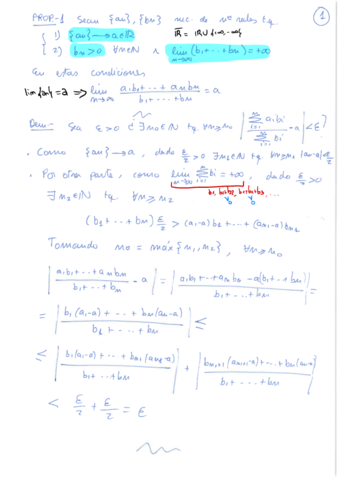 PROP-1 Sean {an}, {bn} suc. de nos reales tq.
1) {an} → a ∈ ℝ̄ ℝ̄ = ℝ ∪ {+∞, -∞}
2) bn > 0 ∀n∈ℕ ∧ lim n→∞ (b1+...+bn) = +∞
En estas condiciones
lim{an} = a ⇒ lim n→∞ (a1b1+...+anbn)/(b1+...+bn) = a
Dem.- Sea ε>0 ¿ ∃n0∈ℕ tq ∀n≥n0 |∑ i=1 n ai bi / ∑ i=1 n bi - a| < ε?
· Como {an} → a, dado ε/2 > 0 ∃n1∈ℕ tq ∀n≥n1 |an-a|<ε/2
· Por otra parte, como lim n→∞ ∑ i=1 n bi = +∞, dado ε/2 > 0
b1, b1+b2, b1+b2+b3, ...
∃n2∈ℕ tq ∀n≥n2
(b1+...+bn) ε/2 > (a1-a)b1+...+(an1-a)bn1
Tomando n0 = máx{n1,n2}, ∀n≥n0
|(a1b1+...+anbn)/(b1+...+bn) - a| = |(a1b1+...+anbn - a(b1+...+bn))/(b1+...+bn)| =
= |(b1(a1-a)+...+bn(an-a))/(b1+...+bn)| ≤
≤ |(b1(a1-a)+...+bn1(an1-a))/(b1+...+bn)| + |(bn1+1(an1+1-a)+...+bn(an-a))/(b1+...+bn)|
< ε/2 + ε/2 = ε